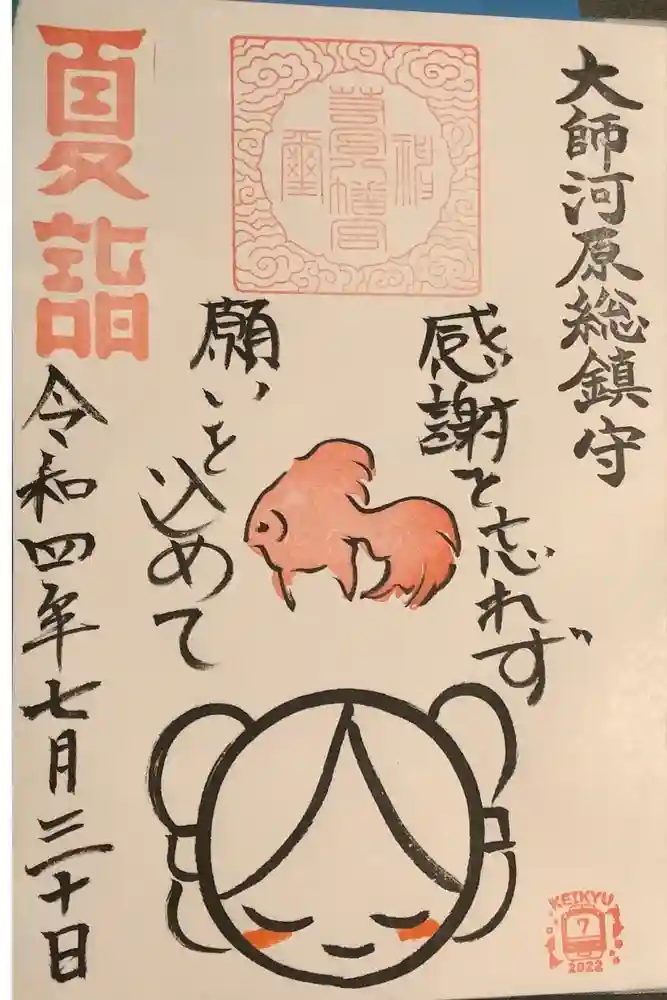 大師河原総鎮守
感謝を忘れず
願いを込めて
夏詣
令和四年七月三十日
KEIKYU
7
2022